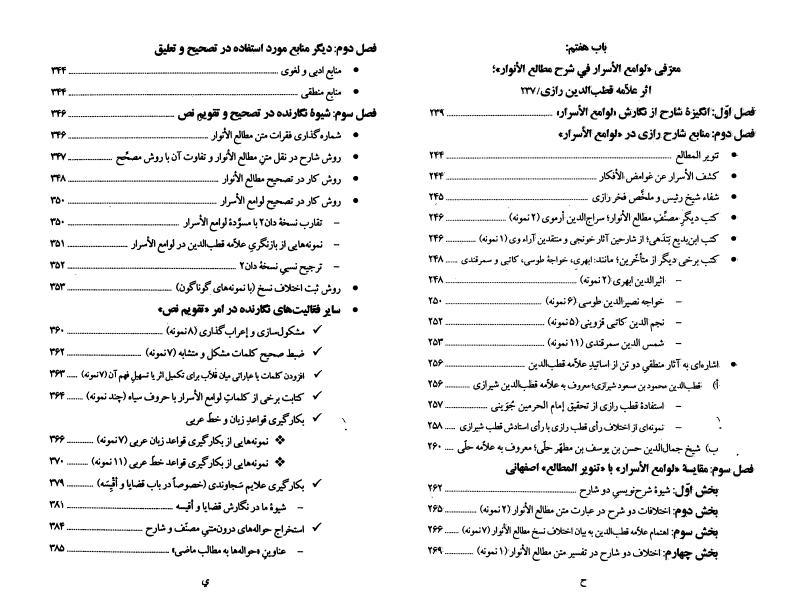 باب هفتم:
معرّفی «لوامع الأسرار في شرح مطالع الأنوار»؛
اثر علّامه قطب‌الدین رازی/۲۳۷
فصل اوّل: انگیزهٔ شارح از نگارش «لوامع الأسرار» ۲۳۹
فصل دوم: منابع شارح رازی در «لوامع الأسرار»
• تنویر المطالع ۲۴۴
• کشف الأسرار عن غوامض الأفکار ۲۴۴
• شفاء شیخ رئیس و ملخّص فخر رازی ۲۴۵
• کتب دیگرِ مصنّفِ مطالع الأنوار؛ سراج‌الدین أرموی (۲ نمونه) ۲۴۶
• کتب ابن‌بدیع بَندَهی؛ از شارحین آثار خونجی و منتقدین آراء وی (۱ نمونه) ۲۴۶
• کتب برخی دیگر از متأخّرین؛ مانند: ابهری، خواجهٔ طوسی، کاتبی و سمرقندی ۲۴۸
– اثیرالدین ابهری (۲ نمونه) ۲۴۸
– خواجه نصیرالدین طوسی (۶ نمونه) ۲۵۰
– نجم الدین کاتبی قزوینی (۵ نمونه) ۲۵۲
– شمس الدین سمرقندی (۱۱ نمونه) ۲۵۳
• اشاره‌ای به آثار منطقیِ دو تن از اساتیدِ علّامه قطب‌الدین ۲۵۶
أ) قطب‌الدین محمود بن مسعود شیرازی؛ معروف به علّامه قطب‌الدین شیرازی ۲۵۶
– استفادهٔ قطب رازی از تحقیق إمام الحرمین جُوَینی ۲۵۷
– نمونه‌ای از اختلاف رأی رازی با رأی استادش قطب شیرازی ۲۵۸
ب) شیخ جمال‌الدین حسن بن یوسف بن مطهّر حلّی؛ معروف به علّامه حلّی ۲۶۰
فصل سوم: مقایسهٔ «لوامع الأسرار» با «تنویر المطالع» اصفهانی
بخش اوّل: شیوهٔ شرح‌نویسی دو شارح ۲۶۲
بخش دوم: اختلافات دو شرح در عبارت متن مطالع الأنوار (۲ نمونه) ۲۶۵
بخش سوم: اهتمام علّامه قطب‌الدین به بیان اختلاف نسخ مطالع الأنوار (۷ نمونه) ۲۶۶
بخش چهارم: اختلاف دو شارح در تفسیر متن مطالع الأنوار (۱ نمونه) ۲۶۹
ح
فصل دوم: دیگر منابع مورد استفاده در تصحیح و تعلیق
• منابع ادبی و لغوی ۳۴۴
• منابع منطقی ۳۴۴
فصل سوم: شیوهٔ نگارنده در تصحیح و تقویم نص ۳۴۶
• شماره‌گذاری فقرات متن مطالع الأنوار ۳۴۶
• روش شارح در نقل متنِ مطالع الأنوار و تفاوت آن با روش مصحّح ۳۴۷
• روش کار در تصحیح مطالع الأنوار ۳۴۸
• روش کار در تصحیح لوامع الأسرار ۳۵۰
– تقارب نسخهٔ دان۲ با مسوّدهٔ لوامع الأسرار ۳۵۰
– نمونه‌هایی از بازنگریِ علّامه قطب‌الدین در لوامع الأسرار ۳۵۱
– ترجیح نسبیِ نسخهٔ دان۲ ۳۵۲
• روش ثبت اختلاف نسخ (با نمونه‌های گوناگون) ۳۵۳
• سایر فعالیت‌های نگارنده در امر «تقویم نص»
✓ مشکول‌سازی و إعراب‌گذاری (۸ نمونه) ۳۶۰
✓ ضبط صحیح کلمات مشکل و متشابه (۷ نمونه) ۳۶۲
✓ افزودن کلمات یا عباراتی میان قلّاب برای تکمیل اثر یا تسهیلِ فهم آن (۷ نمونه) ۳۶۳
✓ کتابت برخی از کلماتِ لوامع الأسرار با حروف سیاه (چند نمونه) ۳۶۴
✓ بکارگیری قواعدِ زبان و خطّ عربی
❖ نمونه‌هایی از بکارگیری قواعد زبان عربی (۷ نمونه) ۳۶۶
❖ نمونه‌هایی از بکارگیری قواعد خطّ عربی (۱۱ نمونه) ۳۷۰
✓ بکارگیری علایم سَجاوندی (خصوصاً در باب قضایا و أقیِسَه) ۳۷۹
– شیوهٔ ما در نگارش قضایا و أقیسه ۳۸۱
✓ استخراج حواله‌های درون‌متنیِ مصنّف و شارح ۳۸۴
– عناوینِ «حواله‌ها به مطالب ماضی» ۳۸۵
ي